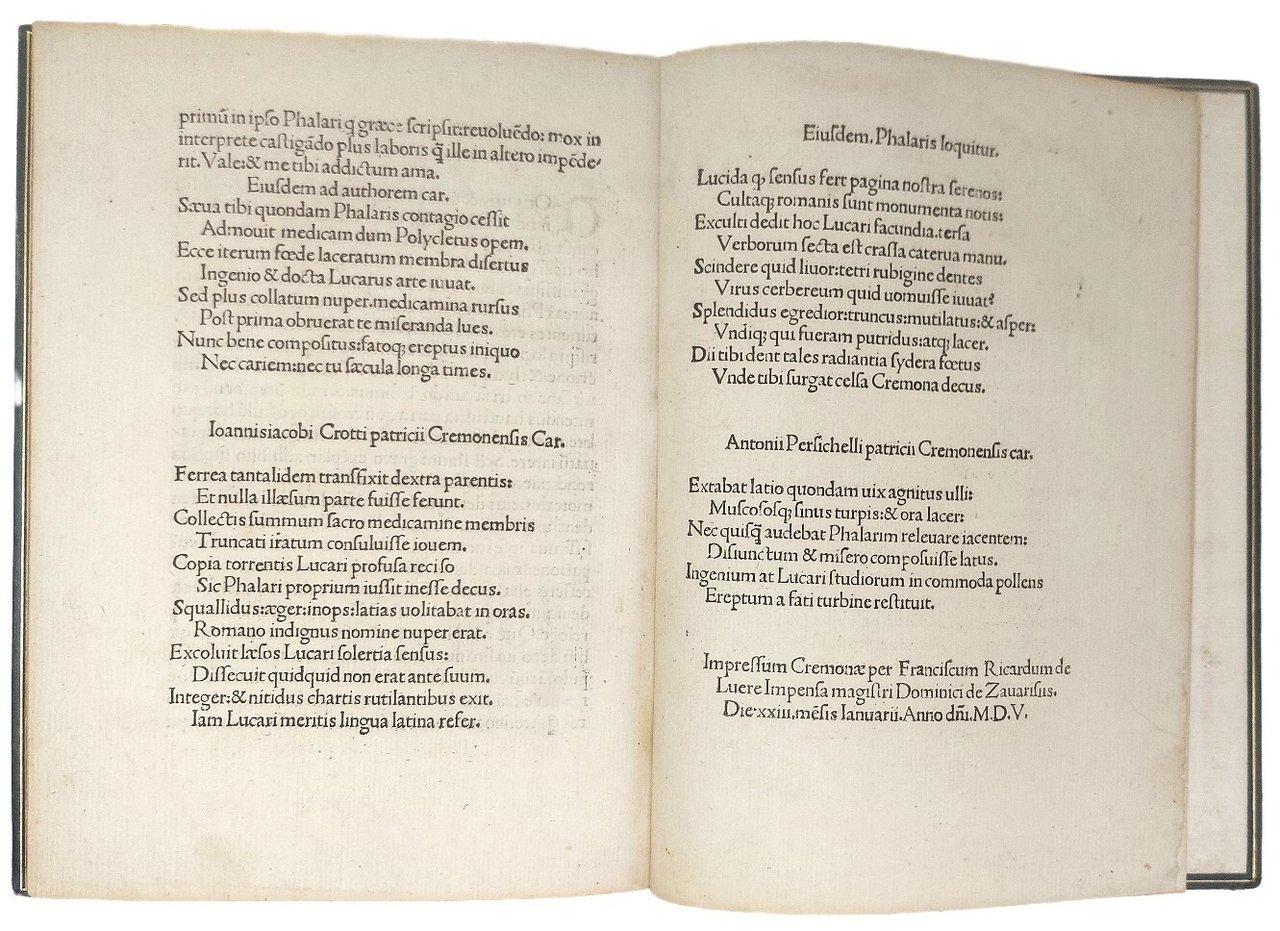 primū in ipso Phalari ꝙ græce scripsit:reuoluēdo: mox in
interprete castigādo plus laboris q̃ ille in altero impēde-
rit. Vale:& me tibi addictum ama.
Eiusdem ad authorem car.
Sæua tibi quondam Phalaris contagio cessit
Admouit medicam dum Polycletus opem.
Ecce iterum fœde laceratum membra disertus
Ingenio & docta Lucarus arte iuuat.
Sed plus collatum nuper.medicamina rursus
Post prima obruerat te miseranda lues.
Nunc bene compositus:fatoq; ereptus iniquo
Nec cariem:nec tu sæcula longa times.
Ioannisiacobi Crotti patricii Cremonensis Car.
Ferrea tantalidem transfixit dextra parentis:
Et nulla illæsum parte fuisse ferunt.
Collectis summum sacro medicamine membris
Truncati iratum consuluisse iouem.
Copia torrentis Lucari profusa reciso
Sic Phalari proprium iussit inesse decus.
Squallidus:æger:inops:latias uolitabat in oras.
Romano indignus nomine nuper erat.
Excoluit læsos Lucari solertia sensus:
Dissecuit quidquid non erat ante suum.
Integer:& nitidus chartis rutilantibus exit.
Iam Lucari meritis lingua latina refer.
Eiusdem. Phalaris loquitur.
Lucida q, sensus fert pagina nostra serenos:
Cultaq; romanis sunt monumenta notis:
Exculti dedit hoc Lucari facundia.tersa
Verborum secta est crassa caterua manu.
Scindere quid liuor:tetri rubigine dentes
Virus cerbereum quid uomuisse iuuat?
Splendidus egredior:truncus:mutilatus:& asper:
Vndiq; qui fueram putridus:atq; lacer.
Dii tibi dent tales radiantia sydera fœtus
Vnde tibi surgat celsa Cremona decus.
Antonii Persichelli patricii Cremonensis car.
Extabat latio quondam uix agnitus ulli:
Muscososq; sinus turpis:& ora lacer:
Nec quisq̃ audebat Phalarim releuare iacentem:
Disiunctum & misero composuisse latus.
Ingenium at Lucari studiorum in commoda pollens
Ereptum a fati turbine restituit.
Impressum Cremonæ per Franciscum Ricardum de
Luere Impensa magistri Dominici de Zauarisiis.
Die.xxiii.mēsis Ianuarii.Anno dñi.M.D.V.